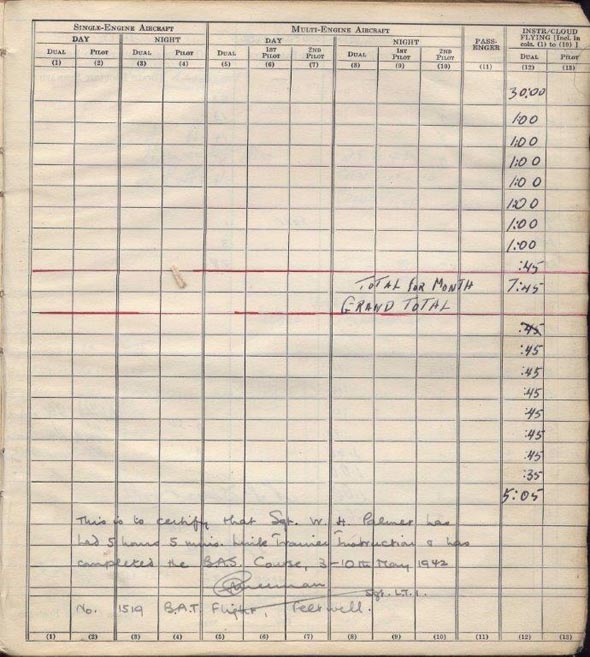 SINGLE-ENGINE AIRCRAFT MULTI-ENGINE AIRCRAFT PASS-ENGER INSTR/CLOUD FLYING [Incl. in cols. (1) to (10) ]
DAY NIGHT DAY NIGHT
DUAL PILOT DUAL PILOT DUAL 1ST PILOT 2ND PILOT DUAL 1ST PILOT 2ND PILOT DUAL PILOT
(1) (2) (3) (4) (5) (6) (7) (8) (9) (10) (11) (12) (13)
30:00
1:00
1:00
1:00
1:00
1:00
1:00
1:00
:45
TOTAL FOR MONTH 7:45
GRAND TOTAL
:45
:45
:45
:45
:45
:45
:45
:35
5:05
This is to certify that Sgt. W. H. Palmer has
had 5 hours 5 mins. Link Trainer Instruction & has
completed the B.A.S. Course, 3-10th May 1942
Sgt. L.T.I.
No. 1519 B.A.T. Flight,
(1) (2) (3) (4) (5) (6) (7) (8) (9) (10) (11) (12) (13)